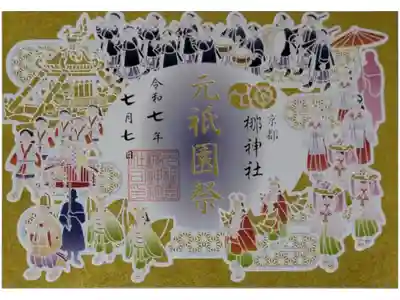 京都
梛神社
元祇園祭
令和七年
七月七日